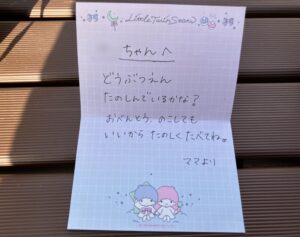 Little Twin Stars
ちゃんへ
どうぶつえん
たのしんでいるかな?
おべんとう、のこしても
いいから たのしくたべてね。
ママより